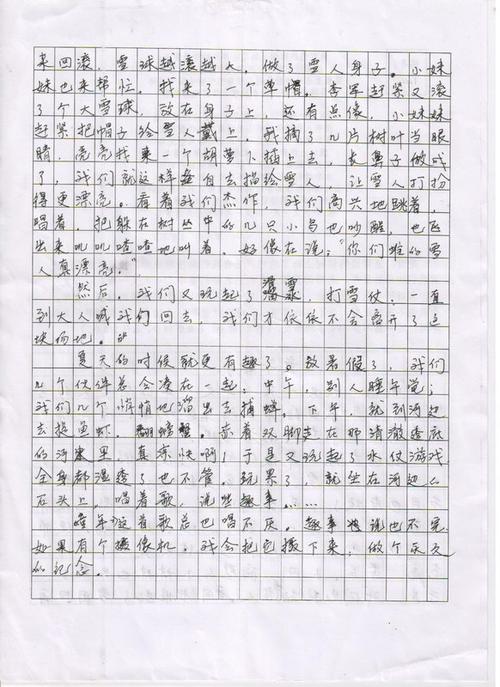 来回滚，雪球越滚越大。做了雪人身子。小妹
妹也来帮忙。找来了一个草帽。李军赶紧又滚
了个大雪球，放在身子上，还有点像，小妹妹
赶紧把帽子给雪人戴上，我摘了几片树叶当眼
睛，亮亮找来一个胡萝卜插上去，长鼻子做成
了，我们就这样各自去描绘雪人，让雪人打扮
得更漂亮。看着我们杰作，我们高兴地跳着，
唱着，把躲在树丛中的几只小鸟也吵醒，也飞
出来叽叽喳喳地叫着，好像在说：“你们堆的雪
人真漂亮。”
然后，我们又玩起了滑雪，打雪仗，一直
到大人喊我们回去，我们才依依不舍离开了这
块场地。
夏天的时候就更有趣了。放暑假了，我们
几个伙伴总会凑在一起，中午，别人睡午觉；
我们几个悄悄地溜出去捕蝉。下午，就到河边
去捉鱼虾，翻螃蟹。赤着双脚走在那清澈透底
的河里，真凉快啊！于是又玩起了水仗游戏
全身都湿透了也不管，玩累了，就坐在河边
石头上，唱着歌，说趣事……
童年这首歌总也唱不厌。趣事也说不完
如果有个摄像机，我会把它摄下来，做个永久
的记念。